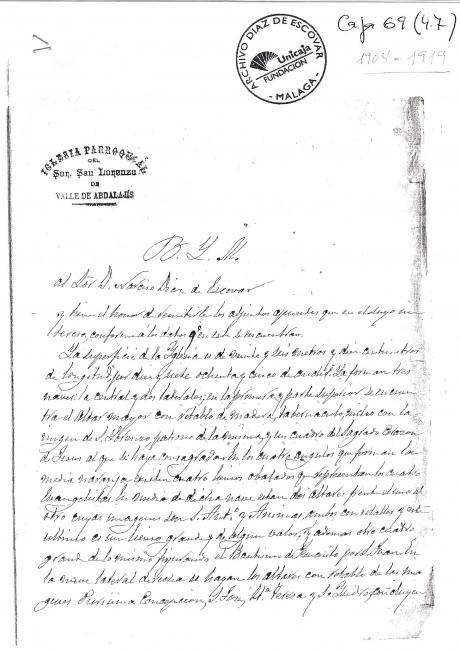 Caja 69 (4.7)
1904-1919
ARCHIVO DIAZ DE ESCOVAR
Unicaja
FUNDACIÓN
- MALAGA -
IGLESIA PARROQUIAL
DEL
Sor. San Lorenzo
DE
VALLE DE ABDALAJÍS
B. L. M.
al Sör D. Narciso Diaz de Escovar
y tiene el honor de remitirle los adjuntos apuntes que en el suyo in
teresa, conforme á los datos q en esta se encuentran.
La superficie de la Yglesia es de veinte y seis metros y diez centimetros
de longitud, por diez y siete ochenta y cinco de ancho. La forman tres
naves: la central y dos laterales; en la primera y parte superior se encuen
tra el Altar mayor con retablo de madera, tabernaculo y nicho con la
imagen de S. Lorenzo patrono de la misma, y un cuadro del Sagrado Corazon
de Jesus al que se haya consagrada. En los cuatro angulos que forman la
media naranja existen cuatro lienzos obalados que representan los cuatro
Evangelistas. En medio de dicha nave estan dos altares frente el uno al
otro cuyas imagenes son S. Antº y Animas, ambos con retablos y este
ultimo es un lienzo grande y de algun valor, y ademas otro cuadro
grande de lo mismo figurando el Bautismo de Jesucristo por S. Juan. En
la nave lateral derecha se hayan los altares con retablo de las ima
genes Purisima Concepcion, S. José, Sta Teresa y S. Ysidro